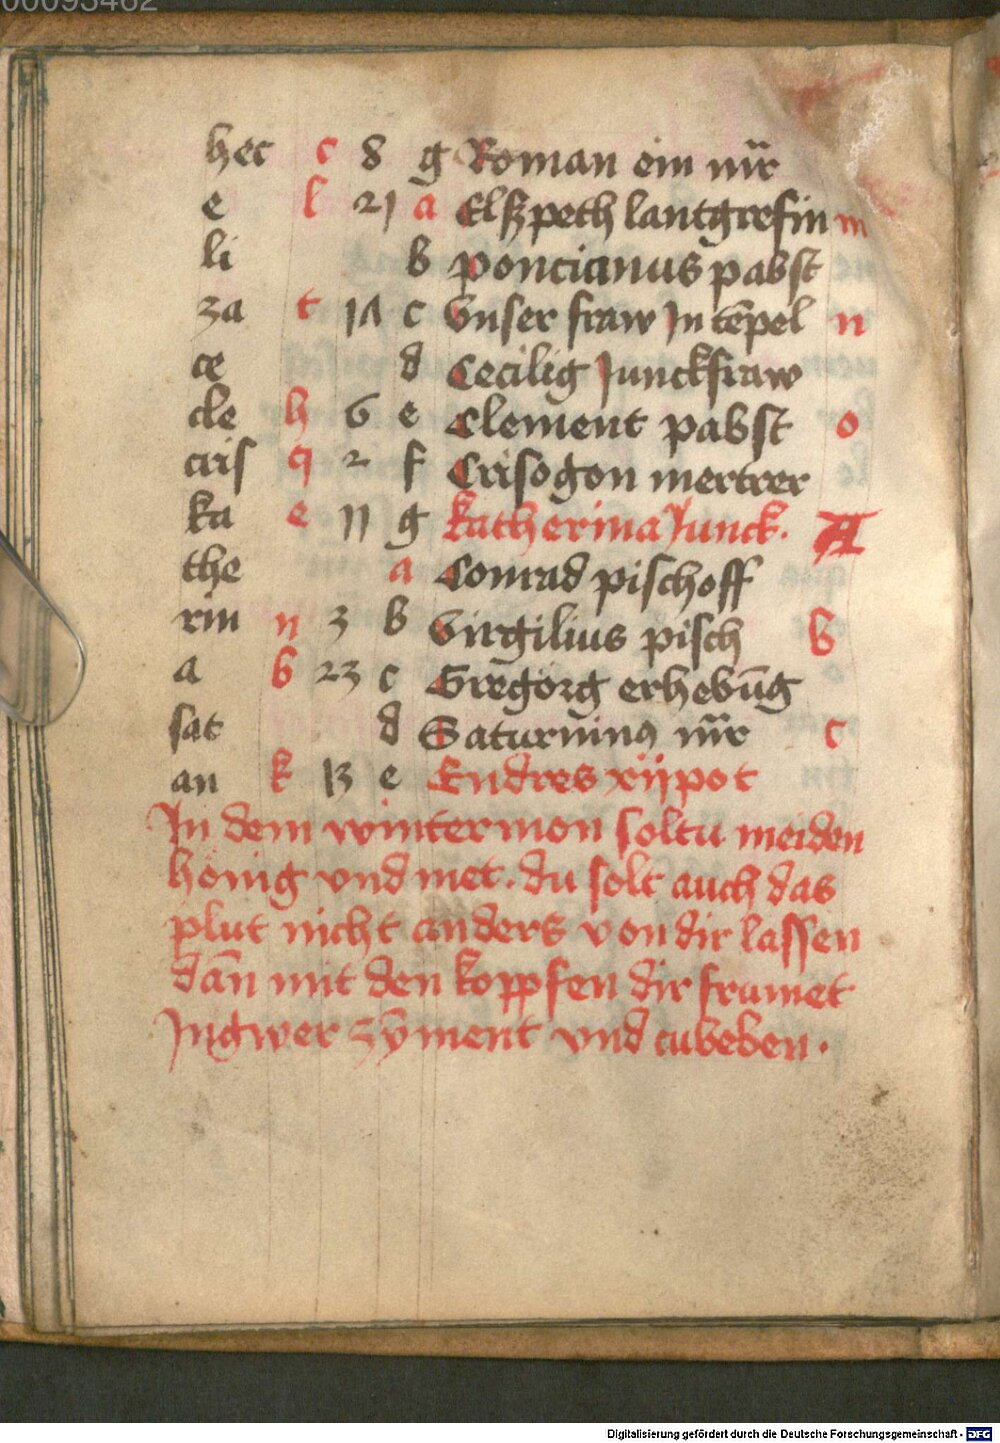 00093462
hec c 8 g Roman ein mr̄
e l 21 a Elßpeth lantgrefin m
li b poncianus pabst
za t 1Λ c Vnser fraw Jn tēpel n
ce d Cecilig Junckfraw
cle h 6 e Clement pabst o
cris q 2 f Crisogon mertrer
ka e 11 g katherina Junck. A
the a Conrad pischoff
rin n 3 b Virgilius pisch b
a b 23 c Gregorg erhebūg
sat d Saturninꝯ mr̄ c
an k 13 e Endres xijpot
Jn dem wintermon soltu meiden
honig vnd met. du solt auch das
plut nicht anders von dir lassen
dān mit den koppfen dir frumet
Jngwer zyment vnd cubeben.
Digitalisierung gefördert durch die Deutsche Forschungsgemeinschaft - DFG